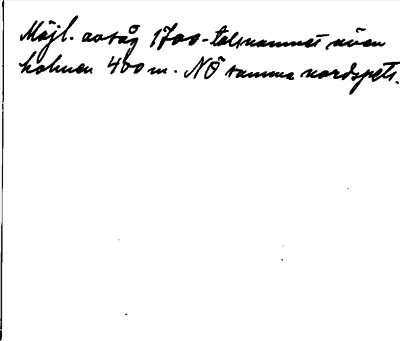 Möjl. avsåg 1700-talsnamnet även
holmen 400 m. NÖ samma nordspets.